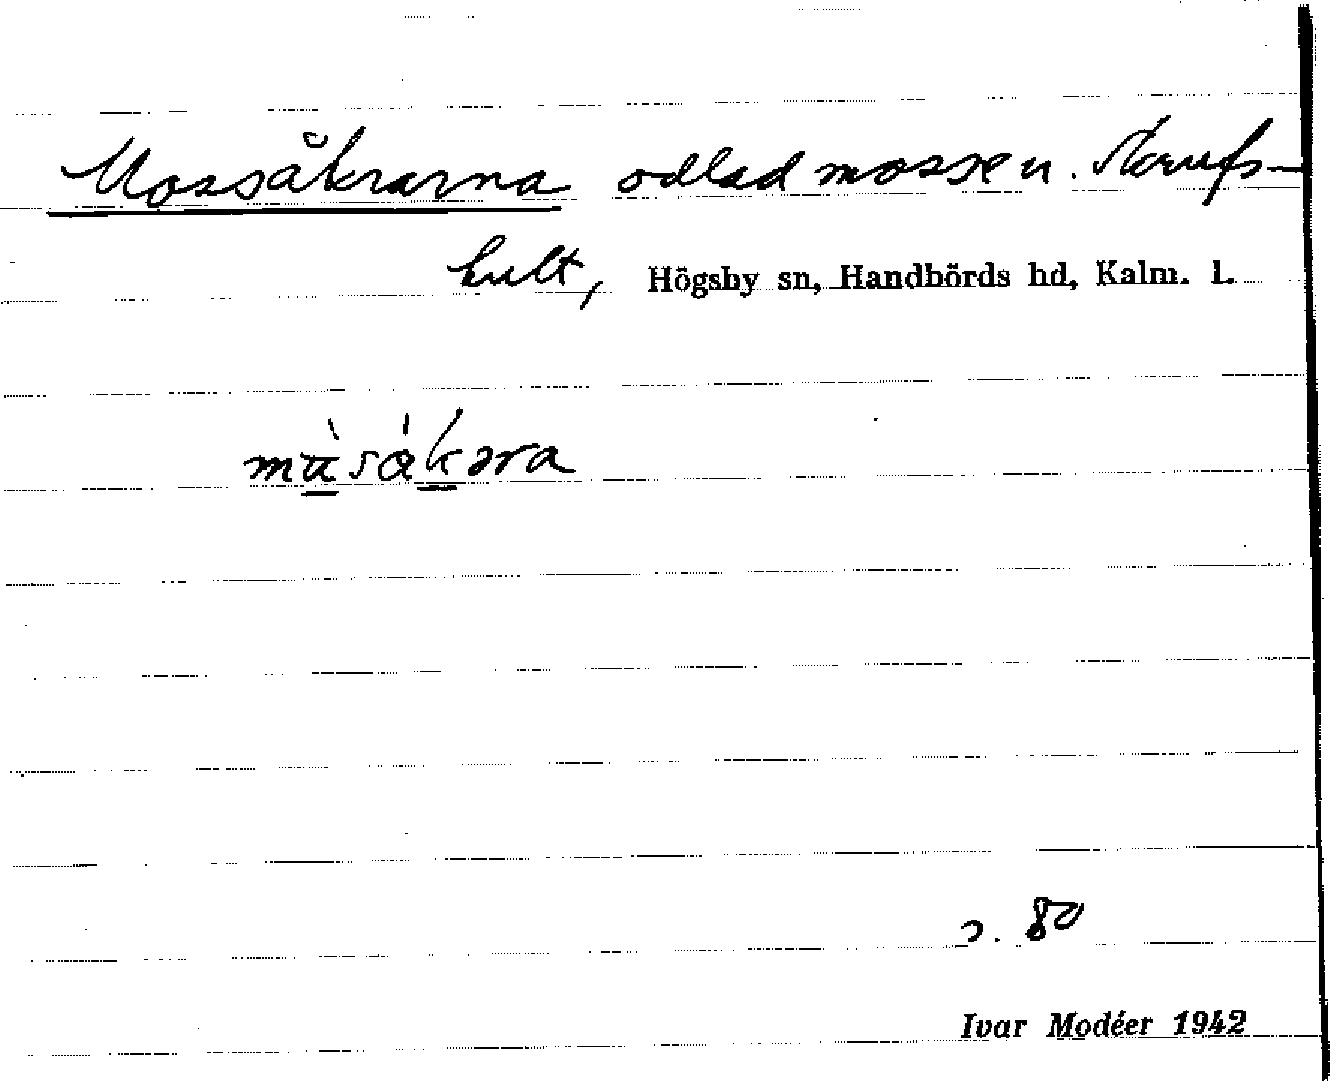 Mossåkrarna odlad mosse u. Skrufs-
hult, Högsby sn, Handbörds hd, Kalm. l.
mùsåkəra
80
Ivar Modéer 1942